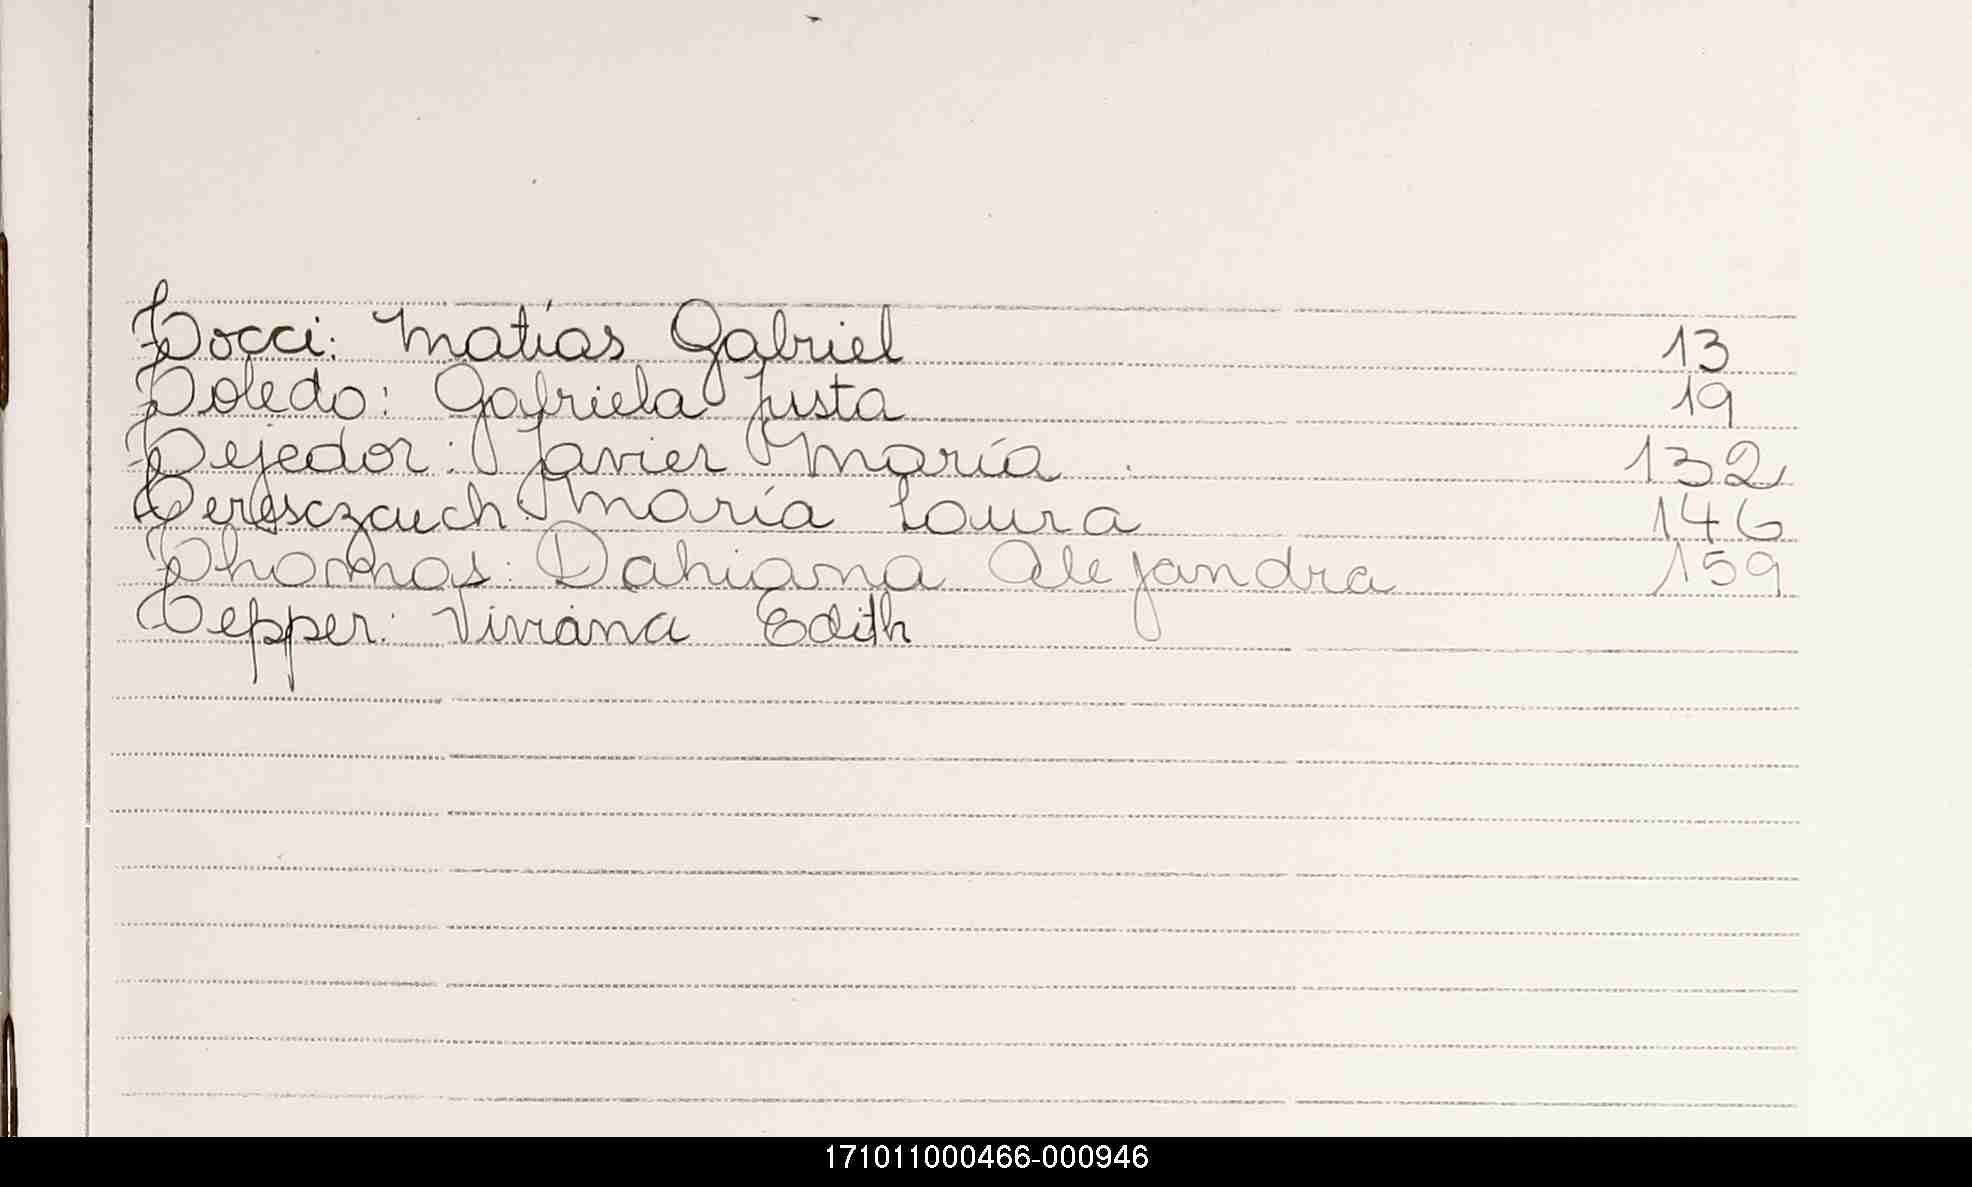 Tocci: Matías Gabriel 13
Toledo: Gabriela Justa 19
Tejedor: Javier María 132
Teresczcuch: María Laura 146
Thomas: Dahiana Alejandra 159
Tepper: Viviana Edith
171011000466-000946